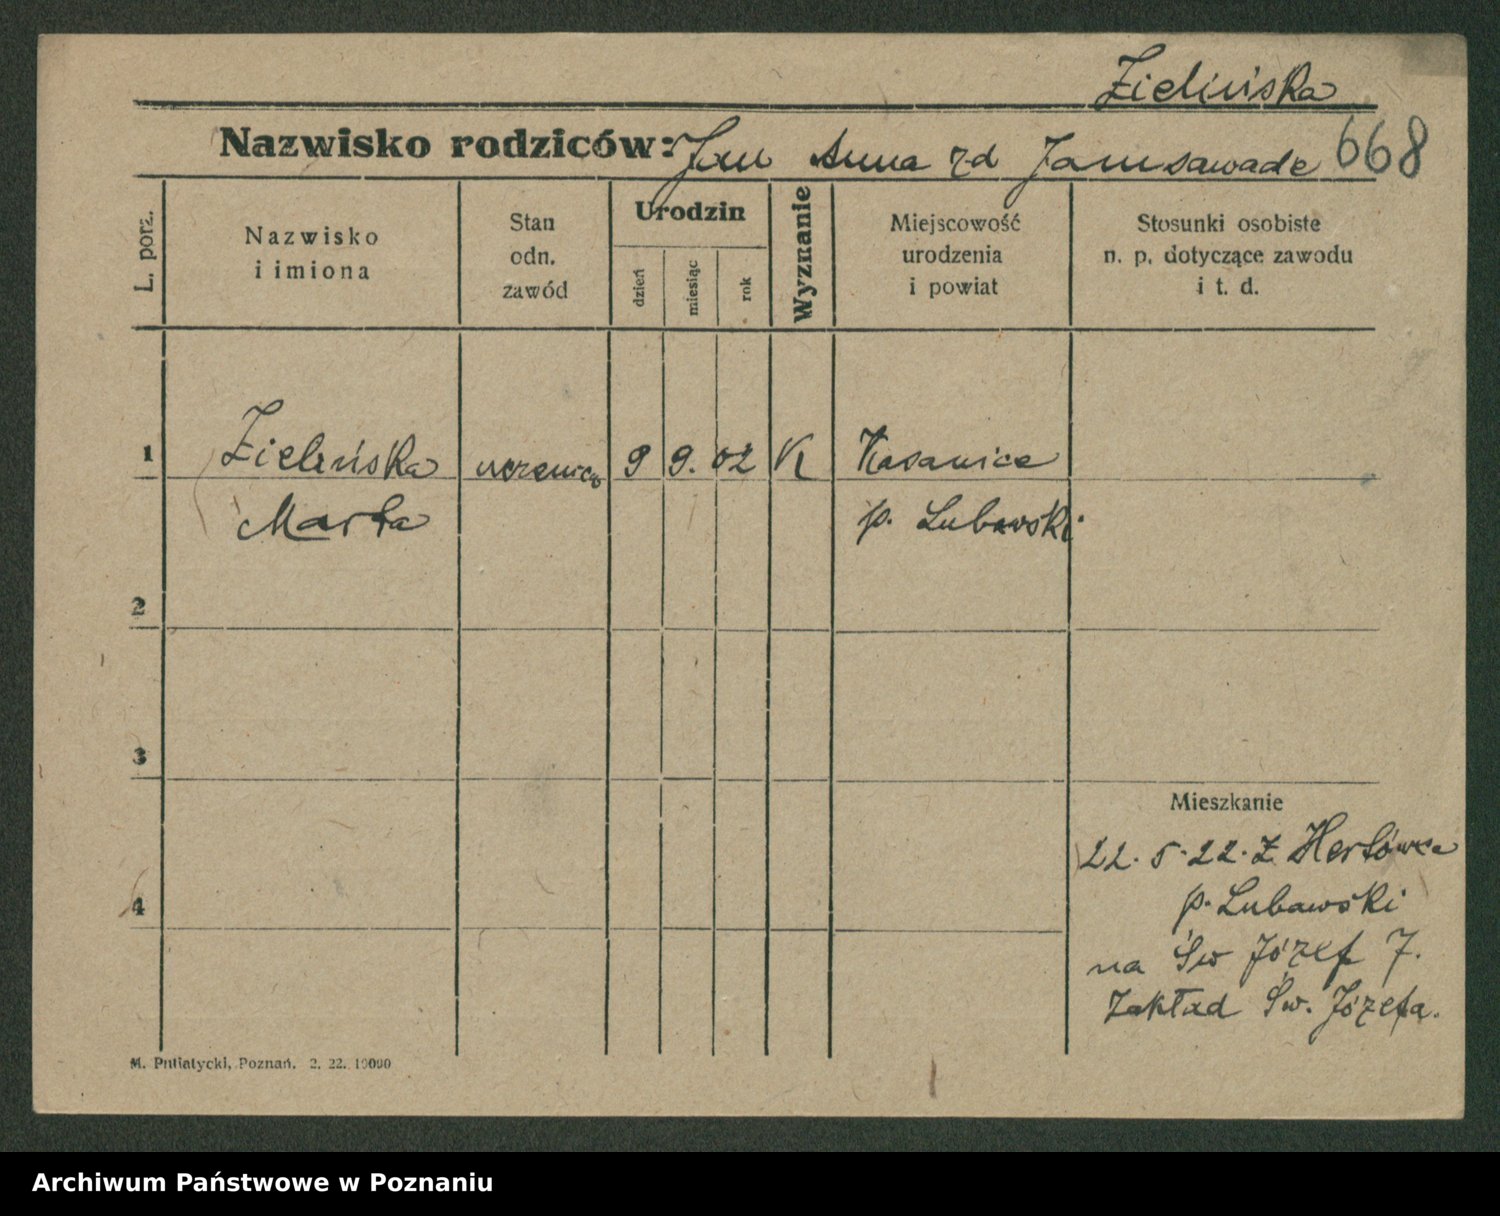 Zielińska
Nazwisko rodziców: Jan Anna zd 668
L. porz.
Nazwisko
i imiona
Stan
odn.
zawód
Urodzin
dzień
miesiąc
rok
Wyznanie
Miejscowość
urodzenia
i powiat
Stosunki osobiste
n. p. dotyczące zawodu
i t. d.
1 Zielińska uczenica 9 9. 02 K Kasanice
Marta p. Lubawski
2
3
Mieszkanie
22. 5. 22. z
4 p. Lubawski
na Św Józef 7.
Zakład Św. Józefa.
M. Putiatycki, Poznań. 2. 22. 10000
Archiwum Państwowe w Poznaniu